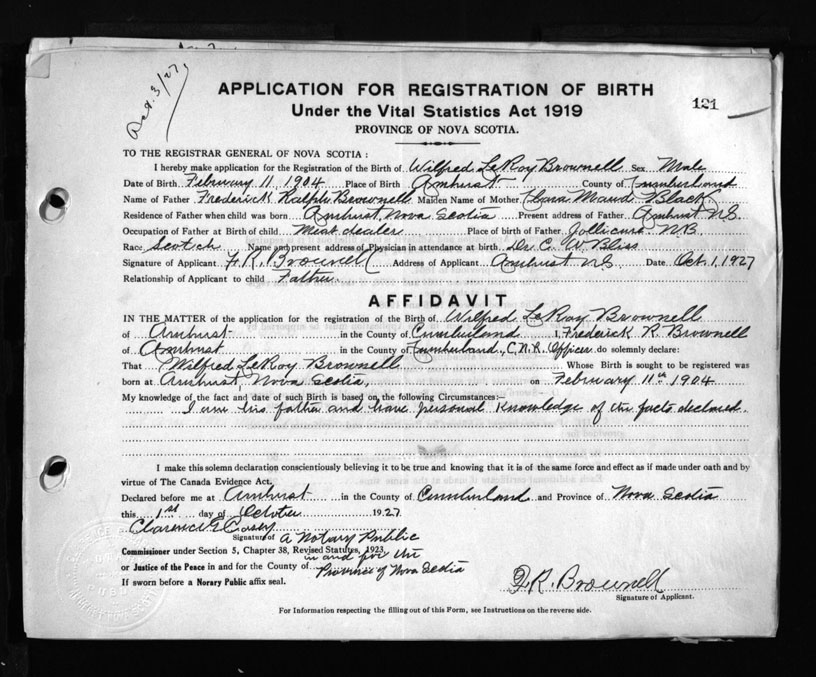 Oct. 3/27
APPLICATION FOR REGISTRATION OF BIRTH
121
Under the Vital Statistics Act 1919
PROVINCE OF NOVA SCOTIA.
TO THE REGISTRAR GENERAL OF NOVA SCOTIA:
I hereby make application for the Registration of the Birth of Wilfred LeRoy Brownell Sex Male
Date of Birth February 11, 1904 Place of Birth Amherst County of Cumberland
Name of Father Frederick Ralph Brownell Maiden Name of Mother Clara Maude Black
Residence of Father when child was born Amherst, Nova Scotia Present address of Father Amherst N.S.
Occupation of Father at Birth of child Meat dealer Place of birth of Father Jollicure N.B.
Race Scotch Name and present address of Physician in attendance at birth Dr. C. W. Bliss
Signature of Applicant F. R. Brownell Address of Applicant Amherst N.S. Date Oct. 1, 1927
Relationship of Applicant to child Father
AFFIDAVIT
IN THE MATTER of the application for the registration of the Birth of Wilfred LeRoy Brownell
of Amherst in the County of Cumberland I, Frederick R Brownell
of Amherst in the County of Cumberland, C.N.R. Officer do solemnly declare:
That Wilfred LeRoy Brownell Whose Birth is sought to be registered was
born at Amherst, Nova Scotia, on February 11th 1904
My knowledge of the fact and date of such Birth is based on the following Circumstances:—
I am his father and have personal knowledge of the facts declared.
I make this solemn declaration conscientiously believing it to be true and knowing that it is of the same force and effect as if made under oath and by
virtue of The Canada Evidence Act.
Declared before me at Amherst in the County of Cumberland and Province of Nova Scotia
this 1st day of October 1927
Clarence E Casey
Signature of A Notary Public
Commissioner under Section 5, Chapter 38, Revised Statutes, 1923
in and for the
or Justice of the Peace in and for the County of Province of Nova Scotia
If sworn before a Notary Public affix seal.
F. R. Brownell
Signature of Applicant.
For Information respecting the filling out of this Form, see Instructions on the reverse side.